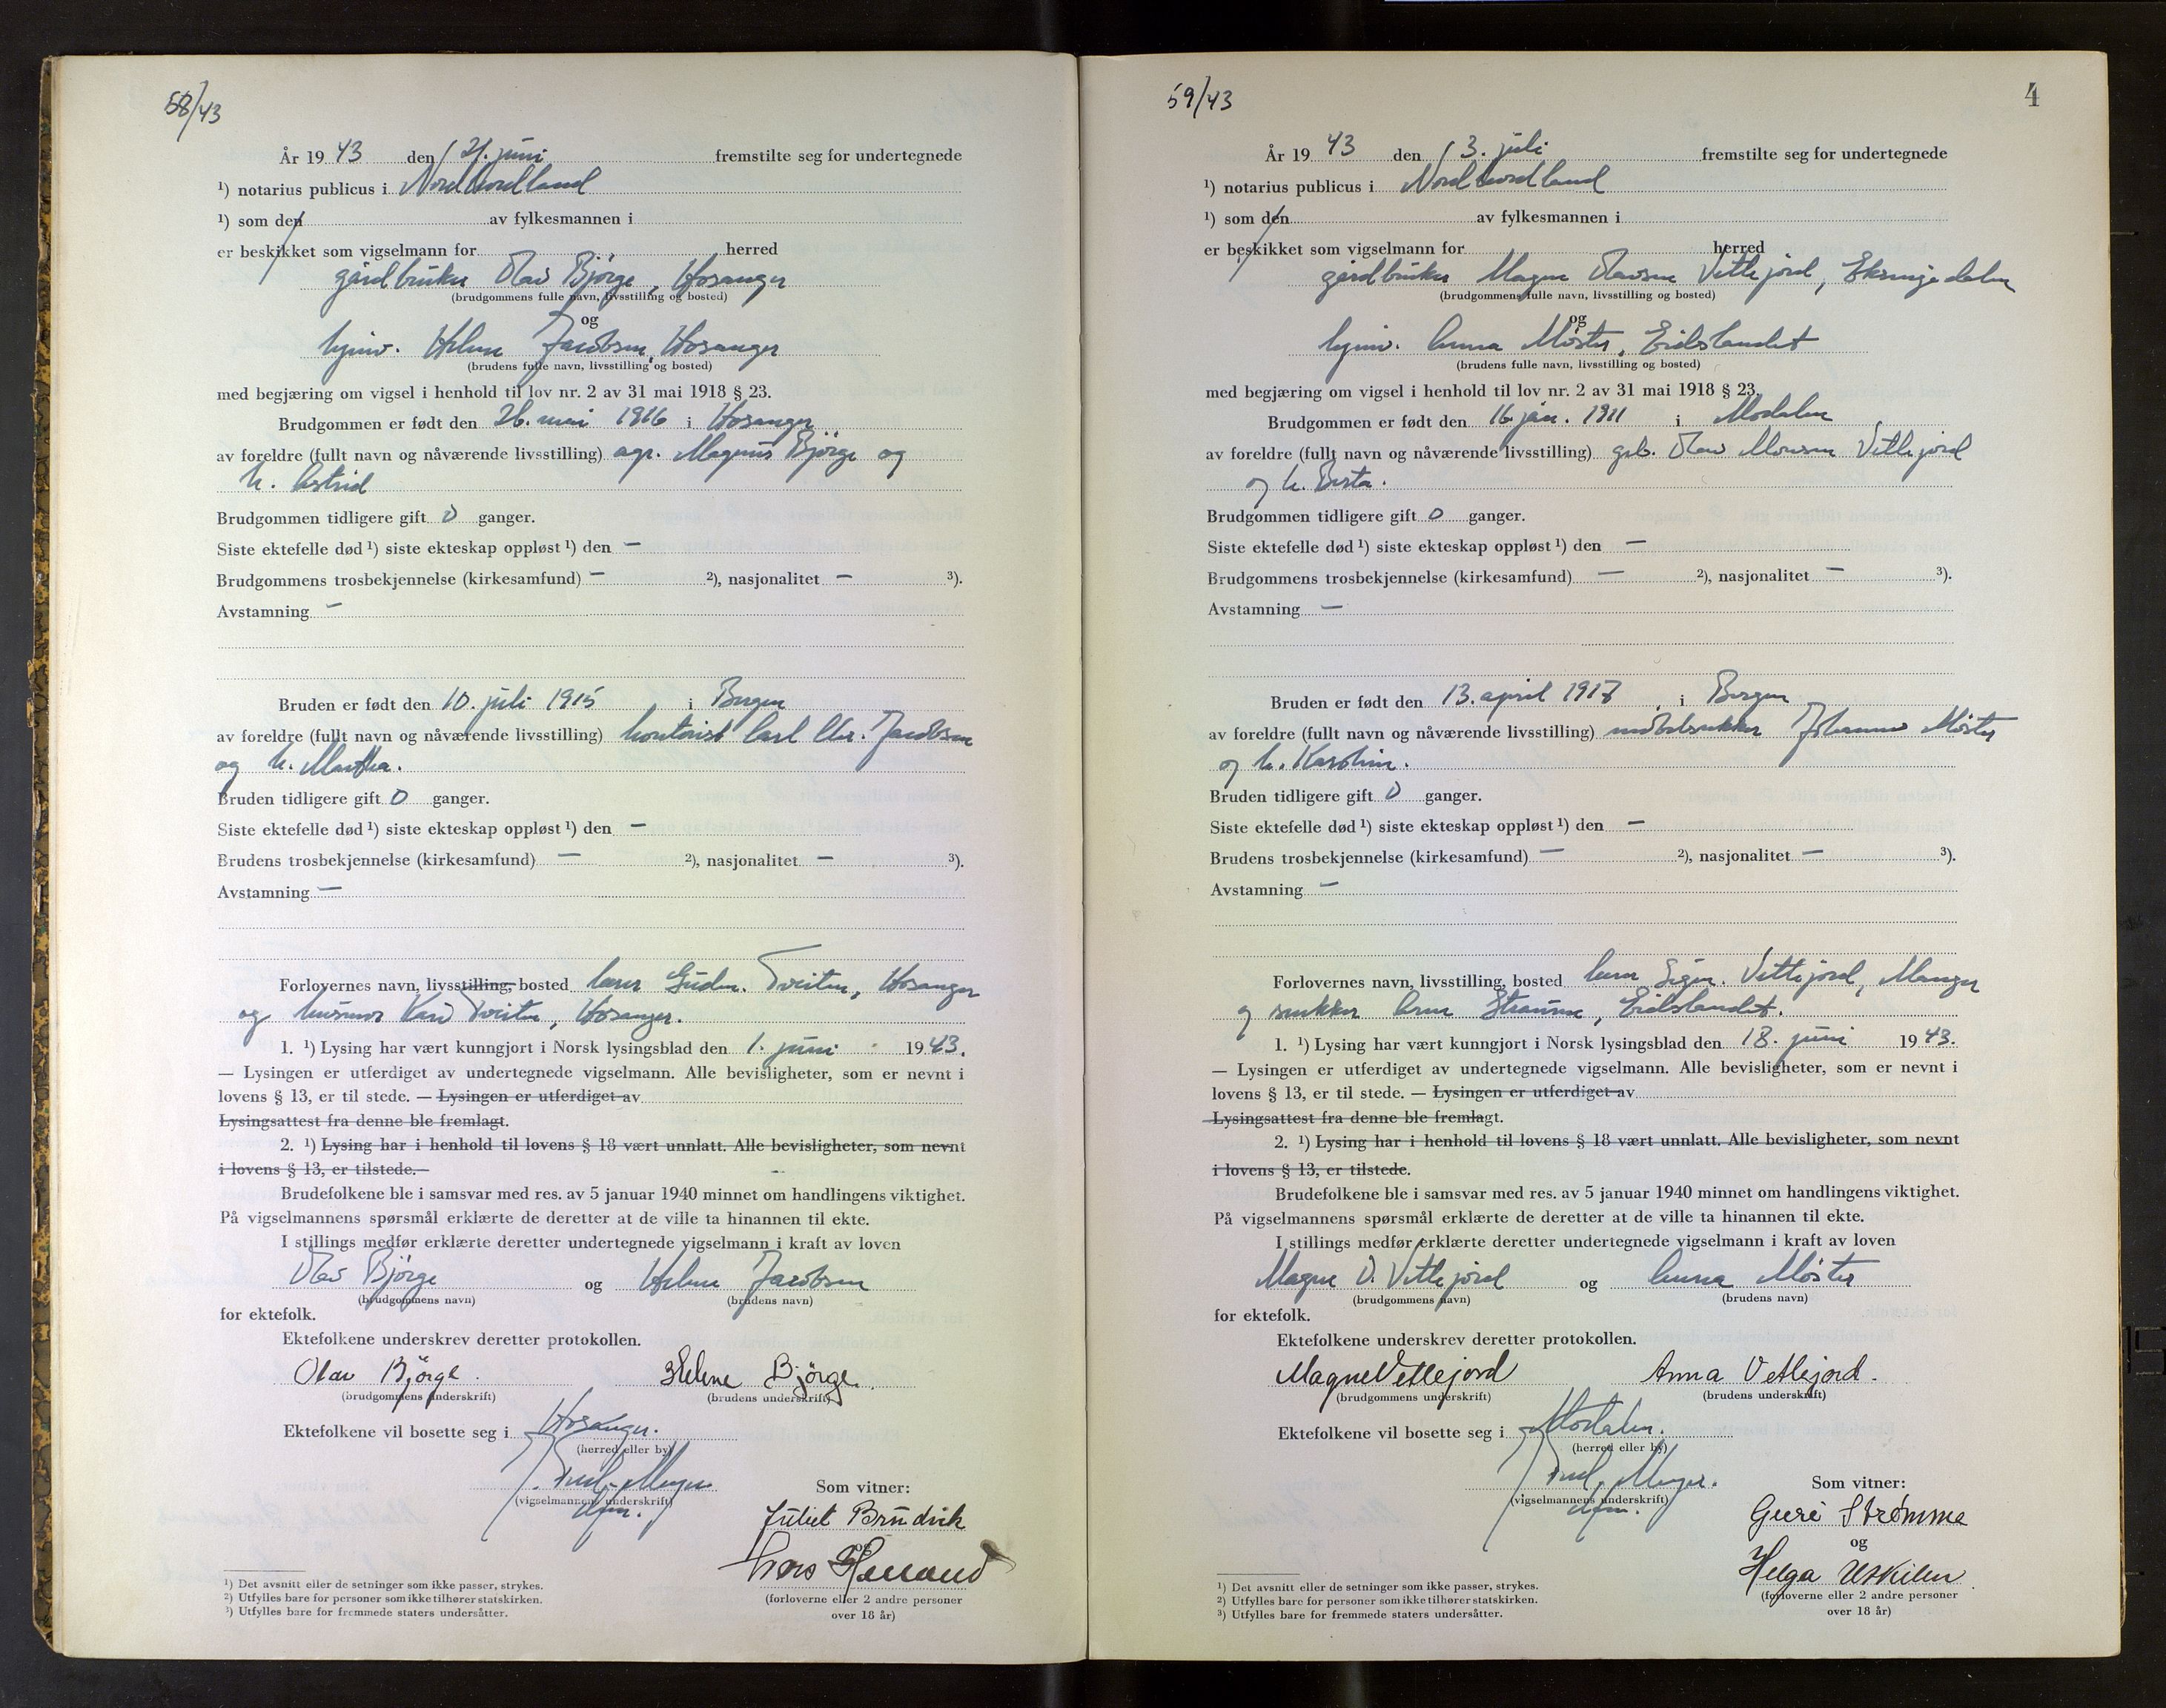 58/43
År 1943 den 21. juni fremstilte seg for undertegnede
¹) notarius publicus i Nordhordland
¹) som den av fylkesmannen i
er beskikket som vigselmann for herred
gårdbruker Olav Bjørge, Hosanger
(brudgommens fulle navn, livsstilling og bosted)
og
hjmv. Helene Jacobsen, Hosanger
(brudens fulle navn, livsstilling og bosted)
med begjæring om vigsel i henhold til lov nr. 2 av 31 mai 1918 § 23.
Brudgommen er født den 26. mai 1916 i Hosanger
av foreldre (fullt navn og nåværende livsstilling) agr. Magnus Bjørge og
h. Astrid
Brudgommen tidligere gift 0 ganger.
Siste ektefelle død ¹) siste ekteskap oppløst ¹) den —
Brudgommens trosbekjennelse (kirkesamfund) — ²), nasjonalitet — ³).
Avstamning —
Bruden er født den 10. juli 1915 i Bergen
av foreldre (fullt navn og nåværende livsstilling) kontorist Carl Chr. Jacobsen
og h. Martha.
Bruden tidligere gift 0 ganger.
Siste ektefelle død ¹) siste ekteskap oppløst ¹) den —
Brudens trosbekjennelse (kirkesamfund) — ²), nasjonalitet — ³).
Avstamning —
Forlovernes navn, livsstilling, bosted lærer Gudm. Tveiten, Hosanger
og husmor Kari Tveiten, Hosanger.
1. ¹) Lysing har vært kunngjort i Norsk lysingsblad den 1. juni 1943.
— Lysingen er utferdiget av undertegnede vigselmann. Alle bevisligheter, som er nevnt i
lovens § 13, er til stede. — Lysingen er utferdiget av
Lysingsattest fra denne ble fremlagt.
2. ¹) Lysing har i henhold til lovens § 18 vært unnlatt. Alle bevisligheter, som nevnt
i lovens § 13, er tilstede.
Brudefolkene ble i samsvar med res. av 5 januar 1940 minnet om handlingens viktighet.
På vigselmannens spørsmål erklærte de deretter at de ville ta hinannen til ekte.
I stillings medfør erklærte deretter undertegnede vigselmann i kraft av loven
Olav Bjørge og Helene Jacobsen
(brudgommens navn) (brudens navn)
for ektefolk.
Ektefolkene underskrev deretter protokollen.
Olav Bjørge. Helene Bjørge.
(brudgommens underskrift) (brudens underskrift)
Ektefolkene vil bosette seg i Hosanger.
(herred eller by)
Meyer
(vigselmannens underskrift)
Som vitner:
Juliet Brudvik
og
Hans
(forloverne eller 2 andre personer
over 18 år)
¹) Det avsnitt eller de setninger som ikke passer, strykes.
²) Utfylles bare for personer som ikke tilhører statskirken.
³) Utfylles bare for fremmede staters undersåtter.
59/43
4
År 1943 den 3. juli fremstilte seg for undertegnede
¹) notarius publicus i Nordhordland
¹) som den av fylkesmannen i
er beskikket som vigselmann for herred
gårdbruker Magne Olavsen Vetlejord, Eksingedalen
(brudgommens fulle navn, livsstilling og bosted)
og
hjmv. Anna Møster, Eidslandet
(brudens fulle navn, livsstilling og bosted)
med begjæring om vigsel i henhold til lov nr. 2 av 31 mai 1918 § 23.
Brudgommen er født den 16. jan. 1911 i Modalen
av foreldre (fullt navn og nåværende livsstilling) grb. Olav Monsen Vetlejord
og h. Berta.
Brudgommen tidligere gift 0 ganger.
Siste ektefelle død ¹) siste ekteskap oppløst ¹) den —
Brudgommens trosbekjennelse (kirkesamfund) — ²), nasjonalitet — ³).
Avstamning —
Bruden er født den 13. april 1917 i Bergen
av foreldre (fullt navn og nåværende livsstilling) møbelsnekker Johannes Møster
og h. Karoline.
Bruden tidligere gift 0 ganger.
Siste ektefelle død ¹) siste ekteskap oppløst ¹) den —
Brudens trosbekjennelse (kirkesamfund) — ²), nasjonalitet — ³).
Avstamning —
Forlovernes navn, livsstilling, bosted Vetlejord, Manger
og snekker Arne Straume, Eidslandet.
1. ¹) Lysing har vært kunngjort i Norsk lysingsblad den 18. juni 1943.
— Lysingen er utferdiget av undertegnede vigselmann. Alle bevisligheter, som er nevnt i
lovens § 13, er til stede. — Lysingen er utferdiget av
Lysingsattest fra denne ble fremlagt.
2. ¹) Lysing har i henhold til lovens § 18 vært unnlatt. Alle bevisligheter, som nevnt
i lovens § 13, er tilstede.
Brudefolkene ble i samsvar med res. av 5 januar 1940 minnet om handlingens viktighet.
På vigselmannens spørsmål erklærte de deretter at de ville ta hinannen til ekte.
I stillings medfør erklærte deretter undertegnede vigselmann i kraft av loven
Magne O. Vetlejord og Anna Møster
(brudgommens navn) (brudens navn)
for ektefolk.
Ektefolkene underskrev deretter protokollen.
Magne Vetlejord Anna Vetlejord.
(brudgommens underskrift) (brudens underskrift)
Ektefolkene vil bosette seg i Modalen.
(herred eller by)
Meyer.
(vigselmannens underskrift)
Som vitner:
Guri Strømme
og
Helga Eskilen
(forloverne eller 2 andre personer
over 18 år)
¹) Det avsnitt eller de setninger som ikke passer, strykes.
²) Utfylles bare for personer som ikke tilhører statskirken.
³) Utfylles bare for fremmede staters undersåtter.